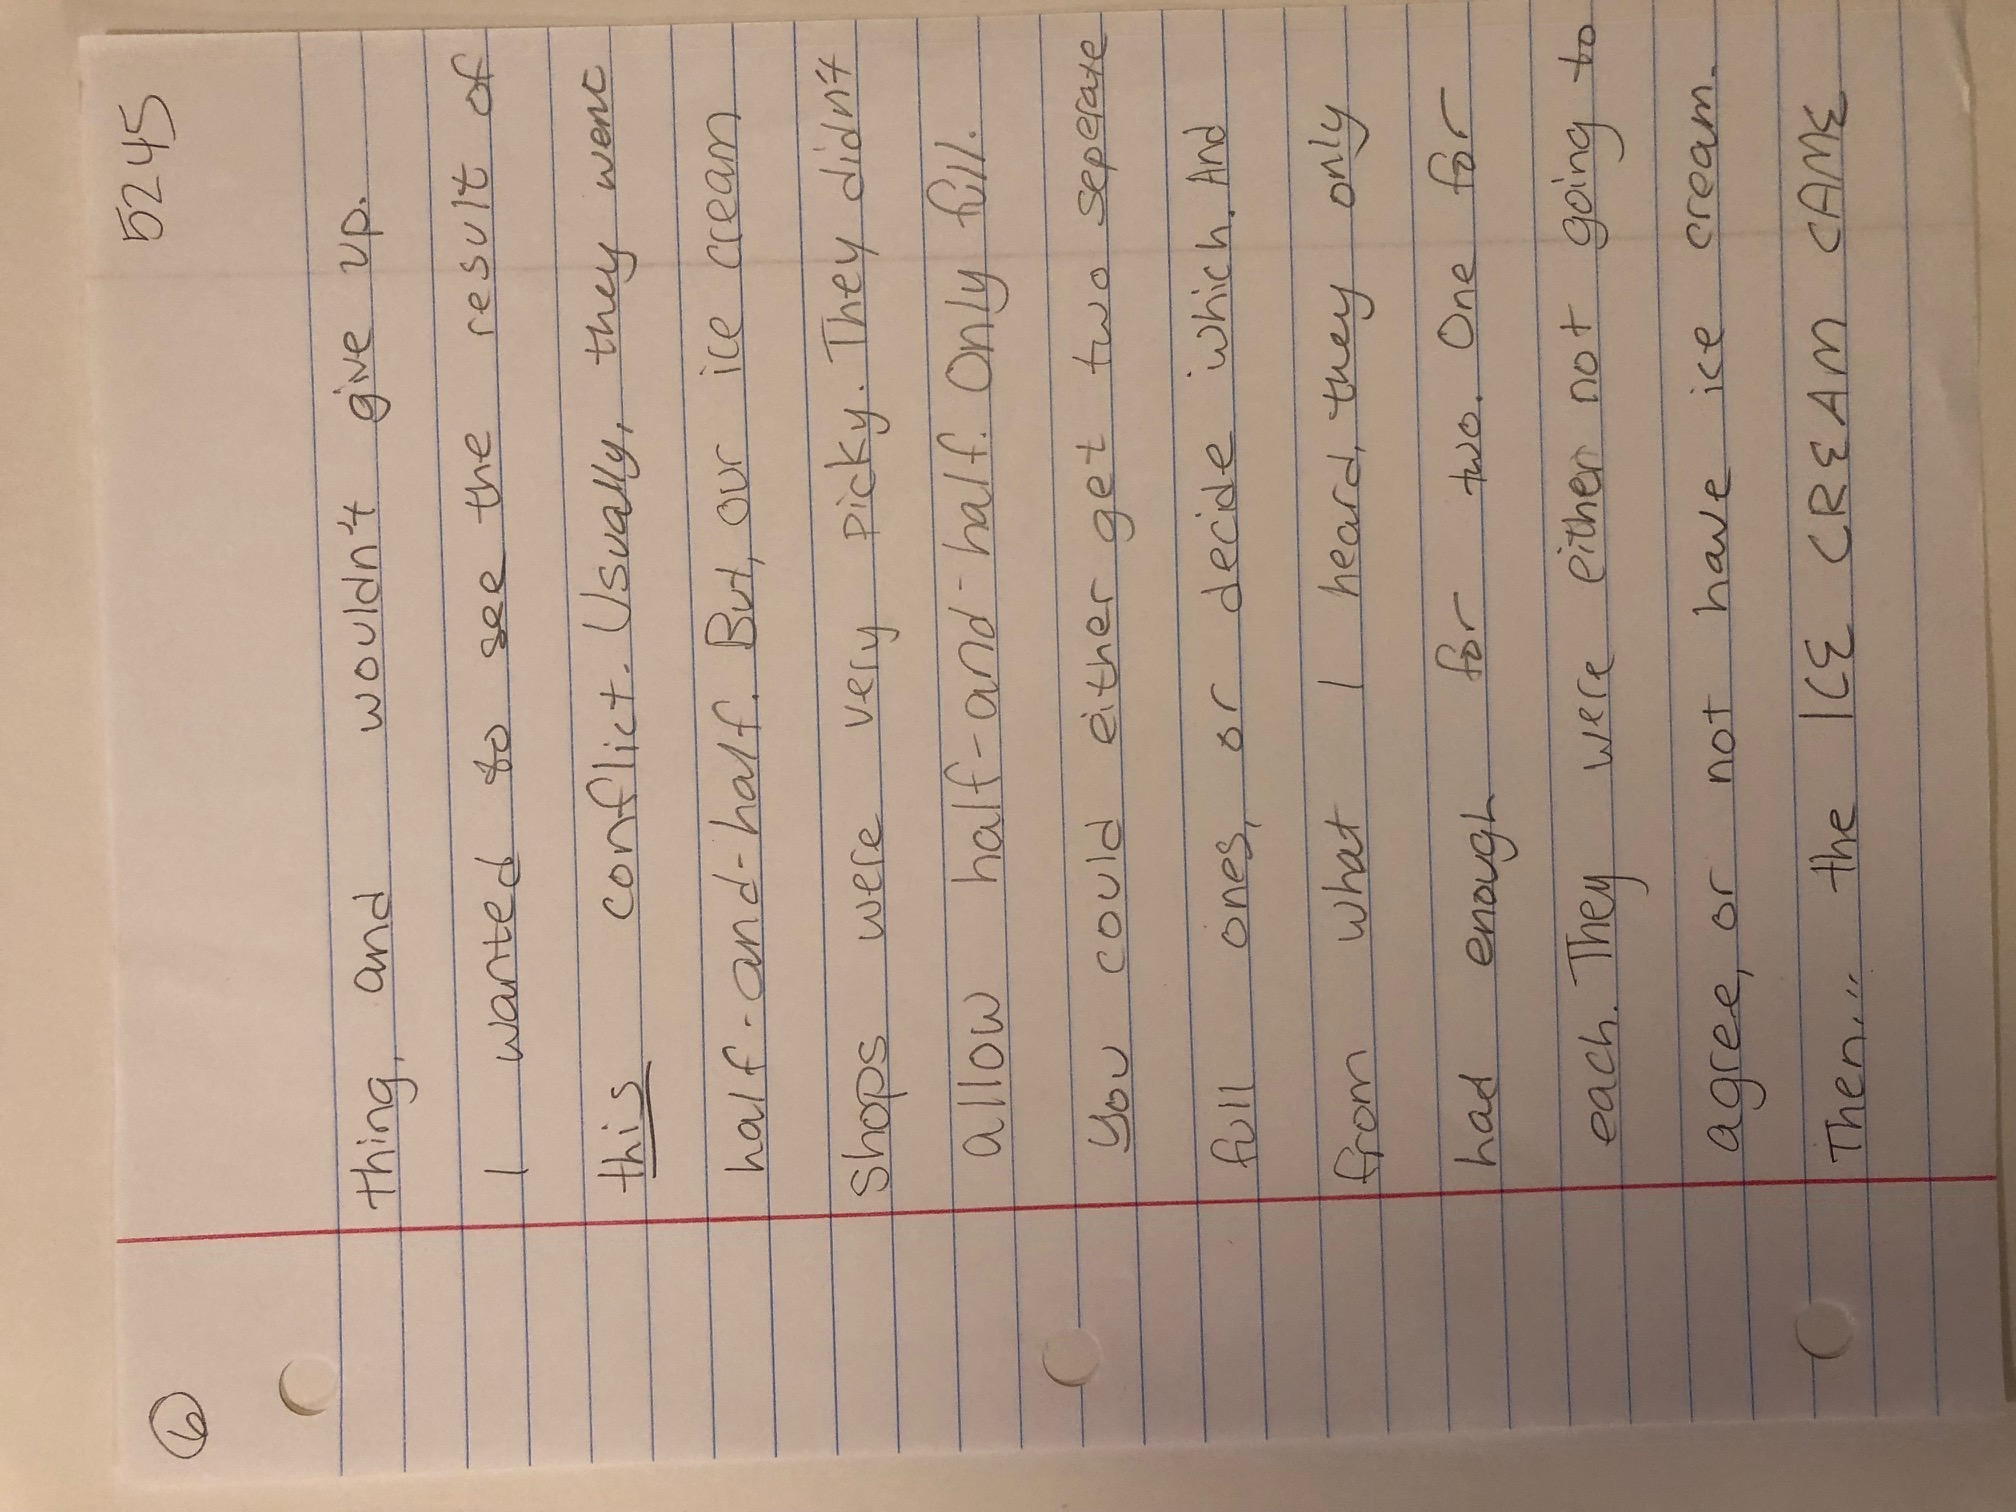 6
5245
thing, and wouldn't give up.
I wanted to see the result of
this conflict. Usually, they went
half-and-half. But, our ice cream
shops were very picky. They didn't
allow half-and-half. Only full.
You could either get two seperate
full ones, or decide which. And
from what I heard, they only
had enough for two. One for
each. They were either not going to
agree, or not have ice cream.
Then... the ICE CREAM CAME